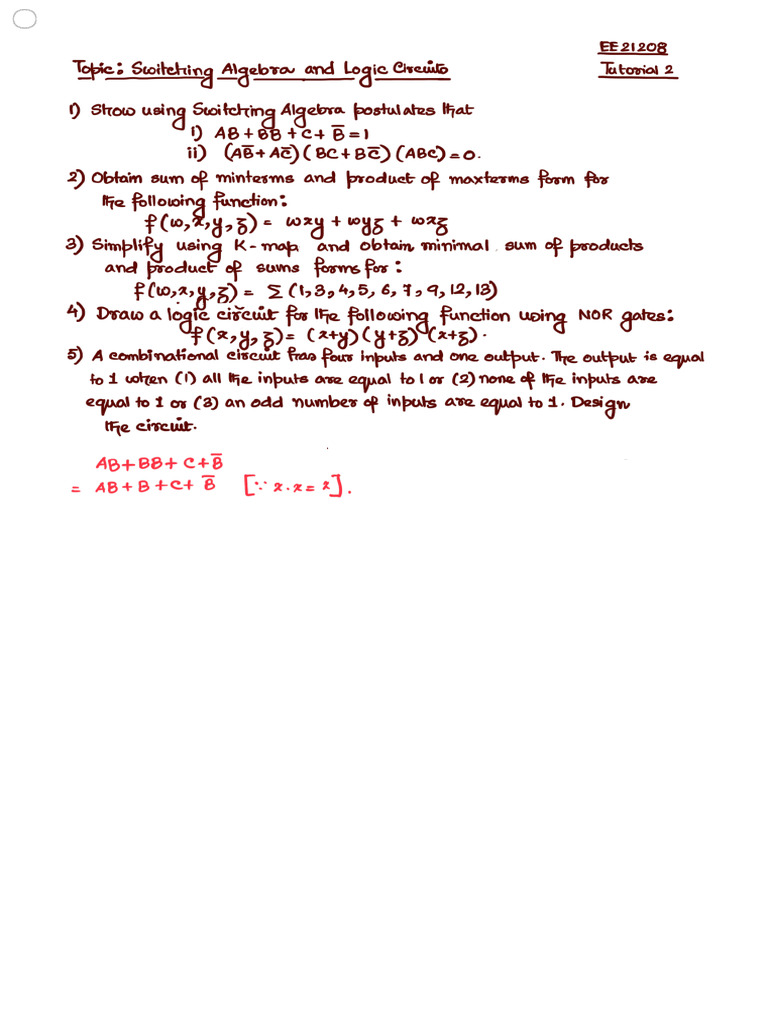 EE21208
Topic: Switching Algebra and Logic Circuits
Tutorial 2
1) Show using Switching Algebra postulates that
i) AB + BB + C + B̅ = 1
ii) (AB̅ + AC̅)(BC + BC̅)(ABC) = 0.
2) Obtain sum of minterms and product of maxterms form for
the following function:
f(w,x,y,z) = wxy + wyz + wxz
3) Simplify using K-map and obtain minimal sum of products
and product of sums forms for:
f(w,x,y,z) = Σ(1,3,4,5,6,7,9,12,13)
4) Draw a logic circuit for the following function using NOR gates:
f(x,y,z) = (x+y)(y+z)(x+z).
5) A combinational circuit has four inputs and one output. The output is equal
to 1 when (1) all the inputs are equal to 1 or (2) none of the inputs are
equal to 1 or (3) an odd number of inputs are equal to 1. Design
the circuit.
AB + BB + C + B̅
= AB + B + C + B̅ [∵ x.x = x].